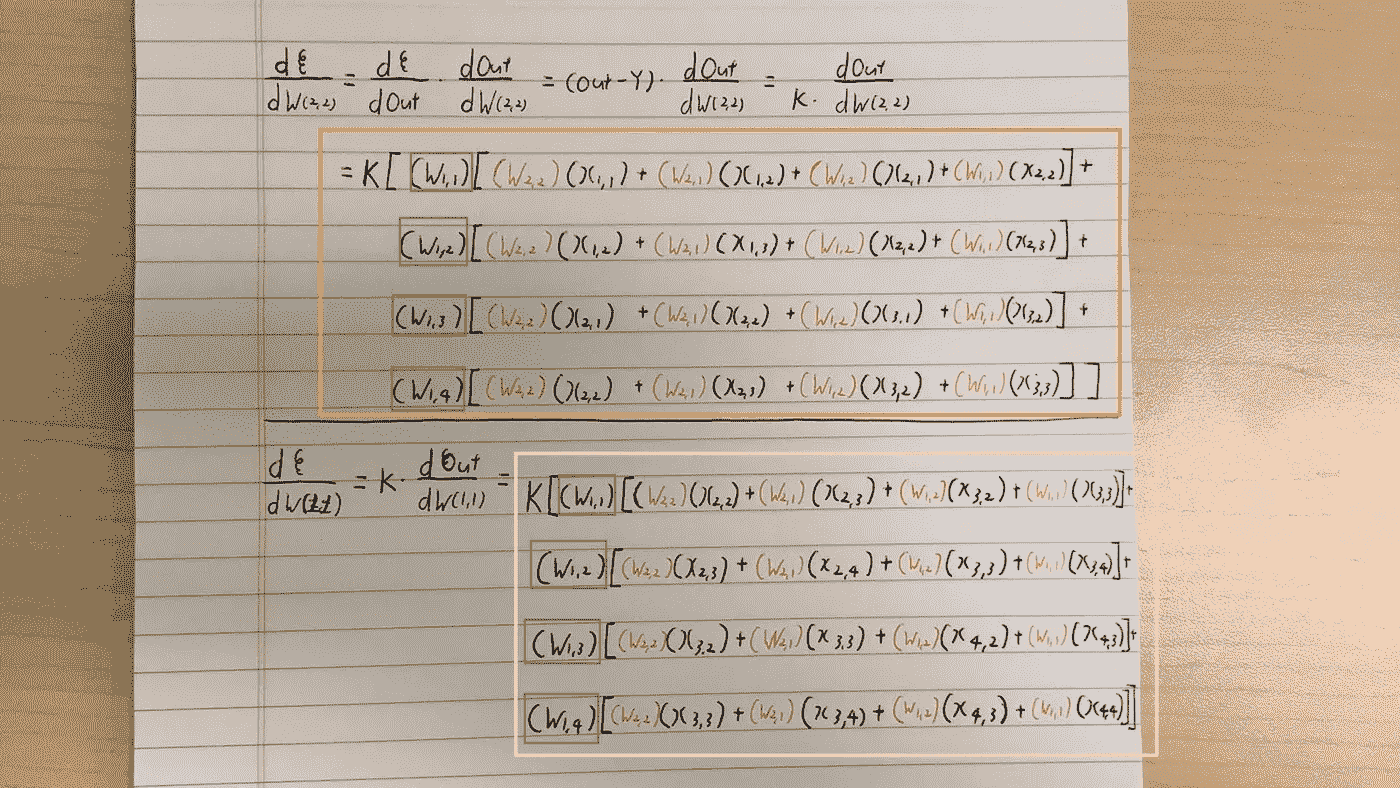 dε/dW(2,2) = dε/dOut · dOut/dW(2,2) = (Out-Y)· dOut/dW(2,2) = K· dOut/dW(2,2)
= K[ (W1,1)[(W2,2)(x1,1) + (W2,1)(x1,2) + (W1,2)(x2,1) + (W1,1)(x2,2)] +
(W1,2)[(W2,2)(x1,2) + (W2,1)(x1,3) + (W1,2)(x2,2) + (W1,1)(x2,3)] +
(W1,3)[(W2,2)(x2,1) + (W2,1)(x2,2) + (W1,2)(x3,1) + (W1,1)(x3,2)] +
(W1,4)[(W2,2)(x2,2) + (W2,1)(x2,3) + (W1,2)(x3,2) + (W1,1)(x3,3)] ]
dε/dW(1,1) = K· dOut/dW(1,1) = K[(W1,1)[(W2,2)(x2,2) + (W2,1)(x2,3) + (W1,2)(x3,2) + (W1,1)(x3,3)]+
(W1,2)[(W2,2)(x2,3) + (W2,1)(x2,4) + (W1,2)(x3,3) + (W1,1)(x3,4)]+
(W1,3)[(W2,2)(x3,2) + (W2,1)(x3,3) + (W1,2)(x4,2) + (W1,1)(x4,3)]+
(W1,4)[(W2,2)(x3,3) + (W2,1)(x3,4) + (W1,2)(x4,3) + (W1,1)(x4,4)]]